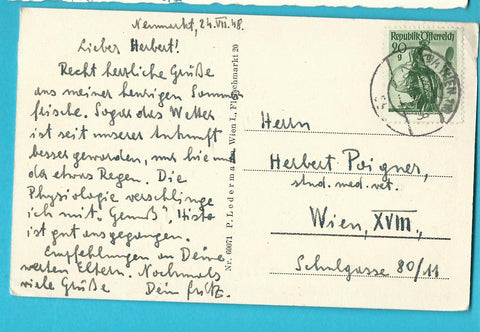 Neumarkt, 24.VII.48.
Lieber Herbert!
Recht herzliche Grüße
aus meiner heurigen Sommer
frische. Sogar das Wetter
ist seit unserer Ankunft
besser geworden, nur hie und
da etwas Regen. Die
Physiologie verschlinge
ich mit „Genuß", Histo
ist gut ausgegangen.
Empfehlungen an Deine
werten Eltern. Nochmals
viele Grüße Dein Fritz.
Nr. 60071 P. Ledermann, Wien I., Fleischmarkt 20
Republik Österreich
20
g
WIEN
Herrn
Herbert Poigner,
stud. med. vet.
Wien, XVIII.,
Schulgasse 80/11